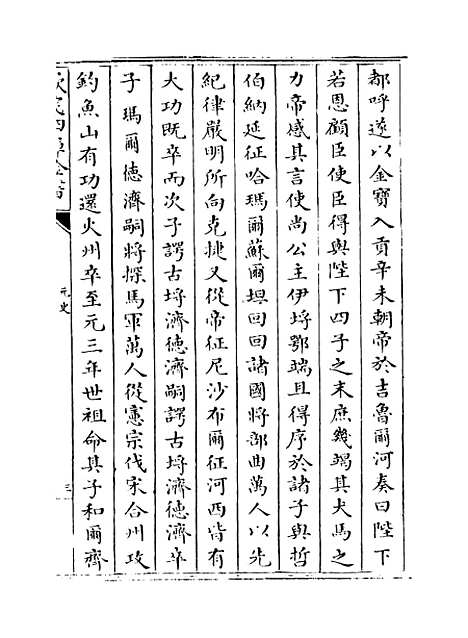 都呼遂以金寶入貢辛未朝帝於吉魯爾河奏曰陛下
若恩顧臣使臣得與陛下四子之末庶幾竭其犬馬之
力帝感其言使尚公主伊埒鄂端且得序於諸子與哲
伯納延征哈瑪爾蘇爾坦回回諸國將部曲萬人以先
紀律嚴明所向克捷又從帝征尼沙布爾征河西皆有
大功既卒而次子諤古埒濟德濟嗣諤古埒濟德濟卒
子瑪爾德濟嗣將探馬軍萬人從憲宗伐宋合州攻
釣魚山有功還火州卒至元三年世祖命其子和爾齊
欽定四庫全書
元史
三